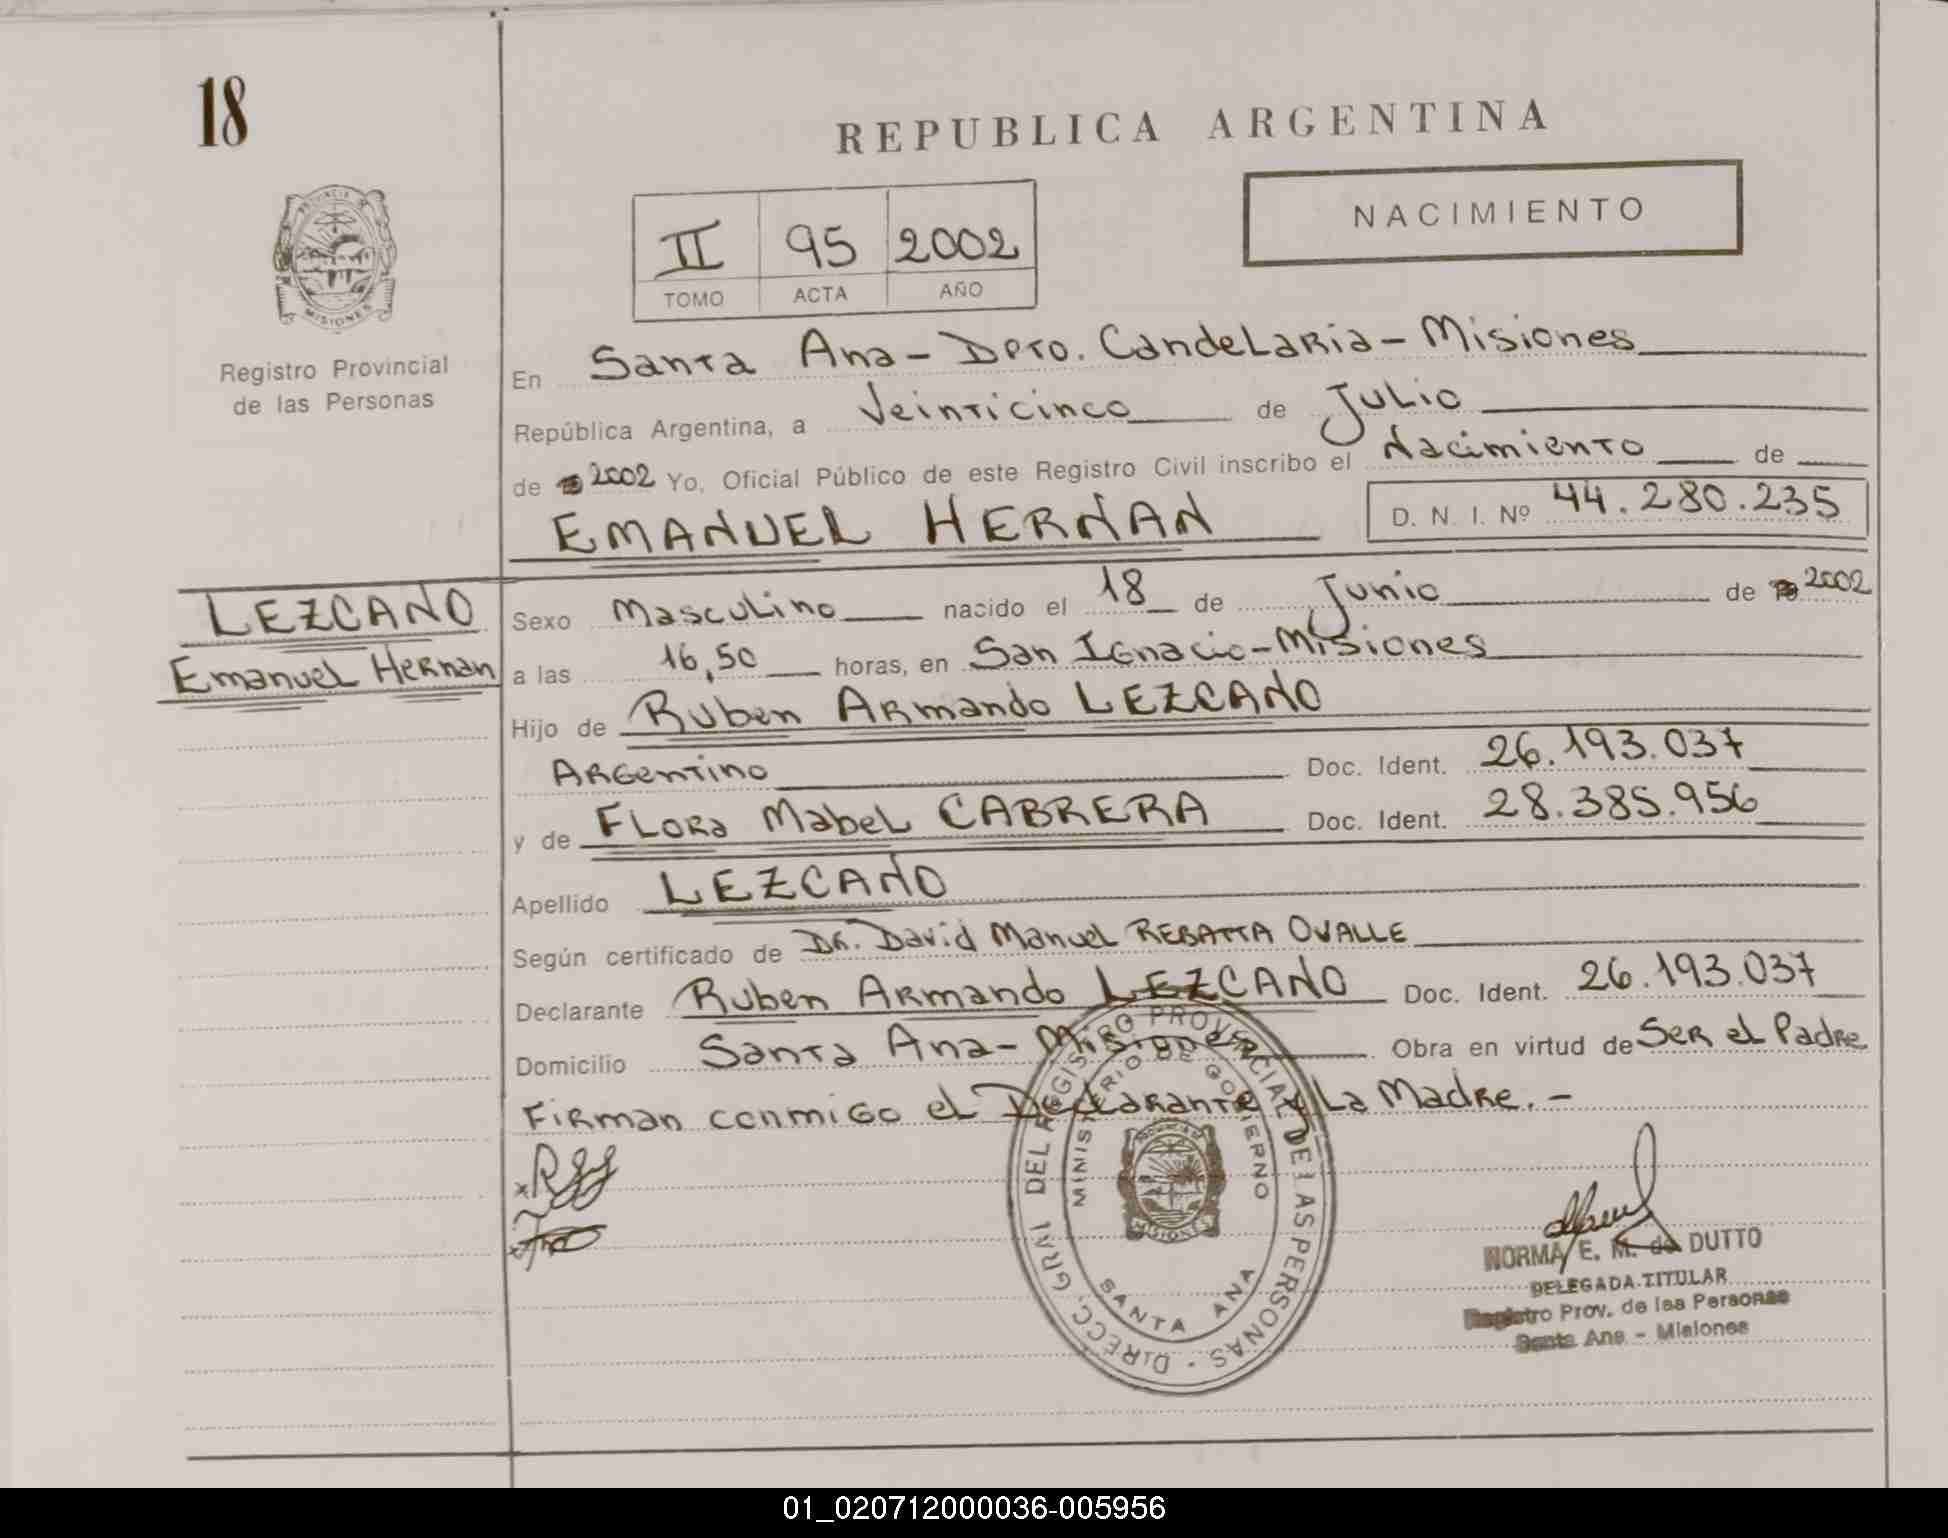 18
REPUBLICA ARGENTINA
NACIMIENTO
II 95 2002
TOMO ACTA AÑO
PROVINCIA
MISIONES
Registro Provincial
de las Personas
En Santa Ana - Dpto. Candelaria - Misiones
República Argentina, a Veinticinco de Julio
de 2002 Yo, Oficial Público de este Registro Civil inscribo el Nacimiento de
EMANUEL HERNAN D. N. I. Nº 44.280.235
LEZCANO
Emanuel Hernan
Sexo Masculino nacido el 18 de Junio de 2002
a las 16,50 horas, en San Ignacio - Misiones
Hijo de Ruben Armando LEZCANO
Argentino Doc. Ident. 26.193.037
y de Flora Mabel CABRERA Doc. Ident. 28.385.956
Apellido LEZCANO
Según certificado de Dr. David Manuel REBATTA OVALLE
Declarante Ruben Armando LEZCANO Doc. Ident. 26.193.037
Domicilio Santa Ana - Misiones Obra en virtud de Ser el Padre
Firman conmigo el Declarante y La Madre. -
DIRECC. GRAL DEL REGISTRO PROVINCIAL DE LAS PERSONAS
MINISTERIO DE GOBIERNO
MISIONES
SANTA ANA
NORMA E. M. de DUTTO
DELEGADA TITULAR
Registro Prov. de las Personas
Santa Ana - Misiones
01_020712000036-005956